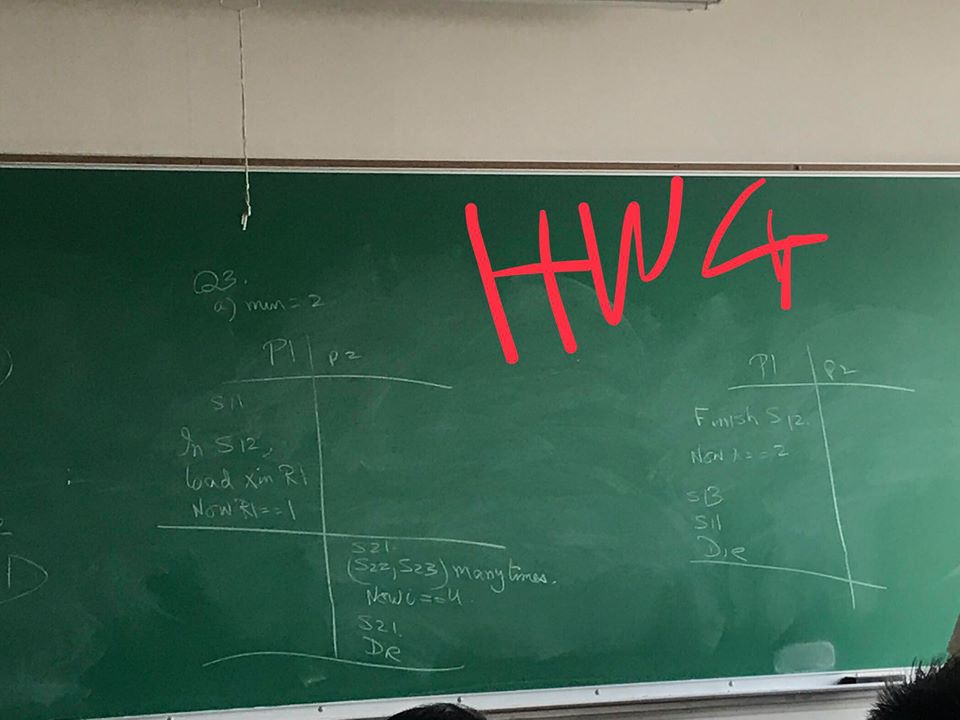 HW 4
Q3.
a) min = 2
P1 P2
S11
In S12,
load x in R1
Now R1==1
S21.
(S22, S23) many times.
Now i==4
S21.
Die
P1 P2
Finish S12.
Now x==2
S13
S11
Die
D